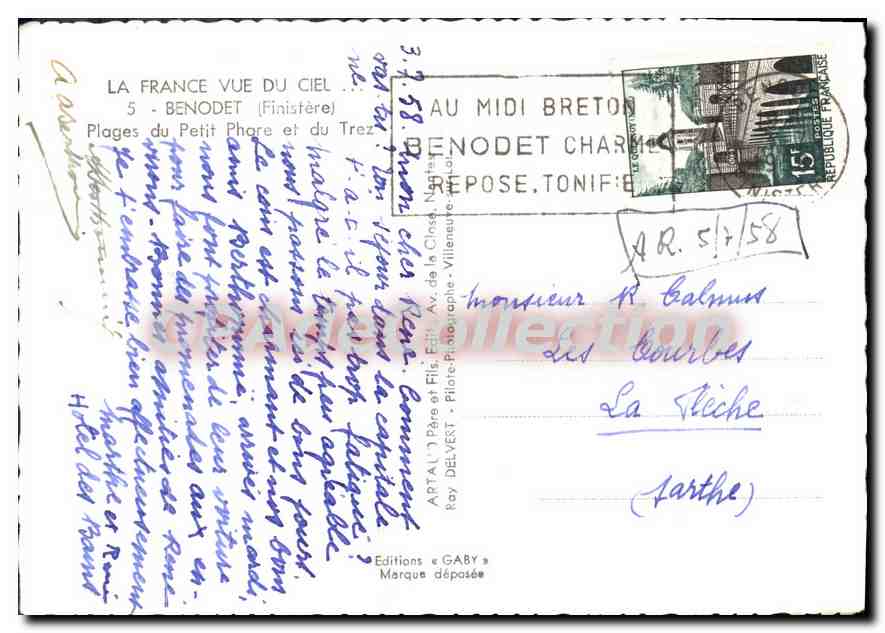 LA FRANCE VUE DU CIEL ...
5 - BENODET (Finistère)
Plages du Petit Phare et du Trez
AU MIDI BRETON
BENODET CHARME
REPOSE, TONIFIE
LE QUESNOY
15F
POSTES
REPUBLIQUE FRANÇAISE
A.R. 5/7/58
3.7.58. mon cher René. Comment
vas tu? ton séjour dans la capitale
ne t'a-t-il pas trop fatigué?
malgré le temps peu agréable
nous passons ici de bons jours
Le coin est charmant et nos bons
amis Berthommé, arrivés mardi,
nous font profiter de leur voiture
pour faire des promenades aux en-
virons. Bonnes amitiés de René
Je t'embrasse bien affectueusement
Marthe et René
Hôtel des Bains
ARTAUD Père et Fils, Edit., Av. de la Close, Nantes
Ray DELVERT - Pilote-Photographe - Villeneuve-sur-Lot
Editions « GABY »
Marque déposée
Monsieur R Calmus
Les Courbes
La Flèche
(Sarthe)
CPAdeCollection